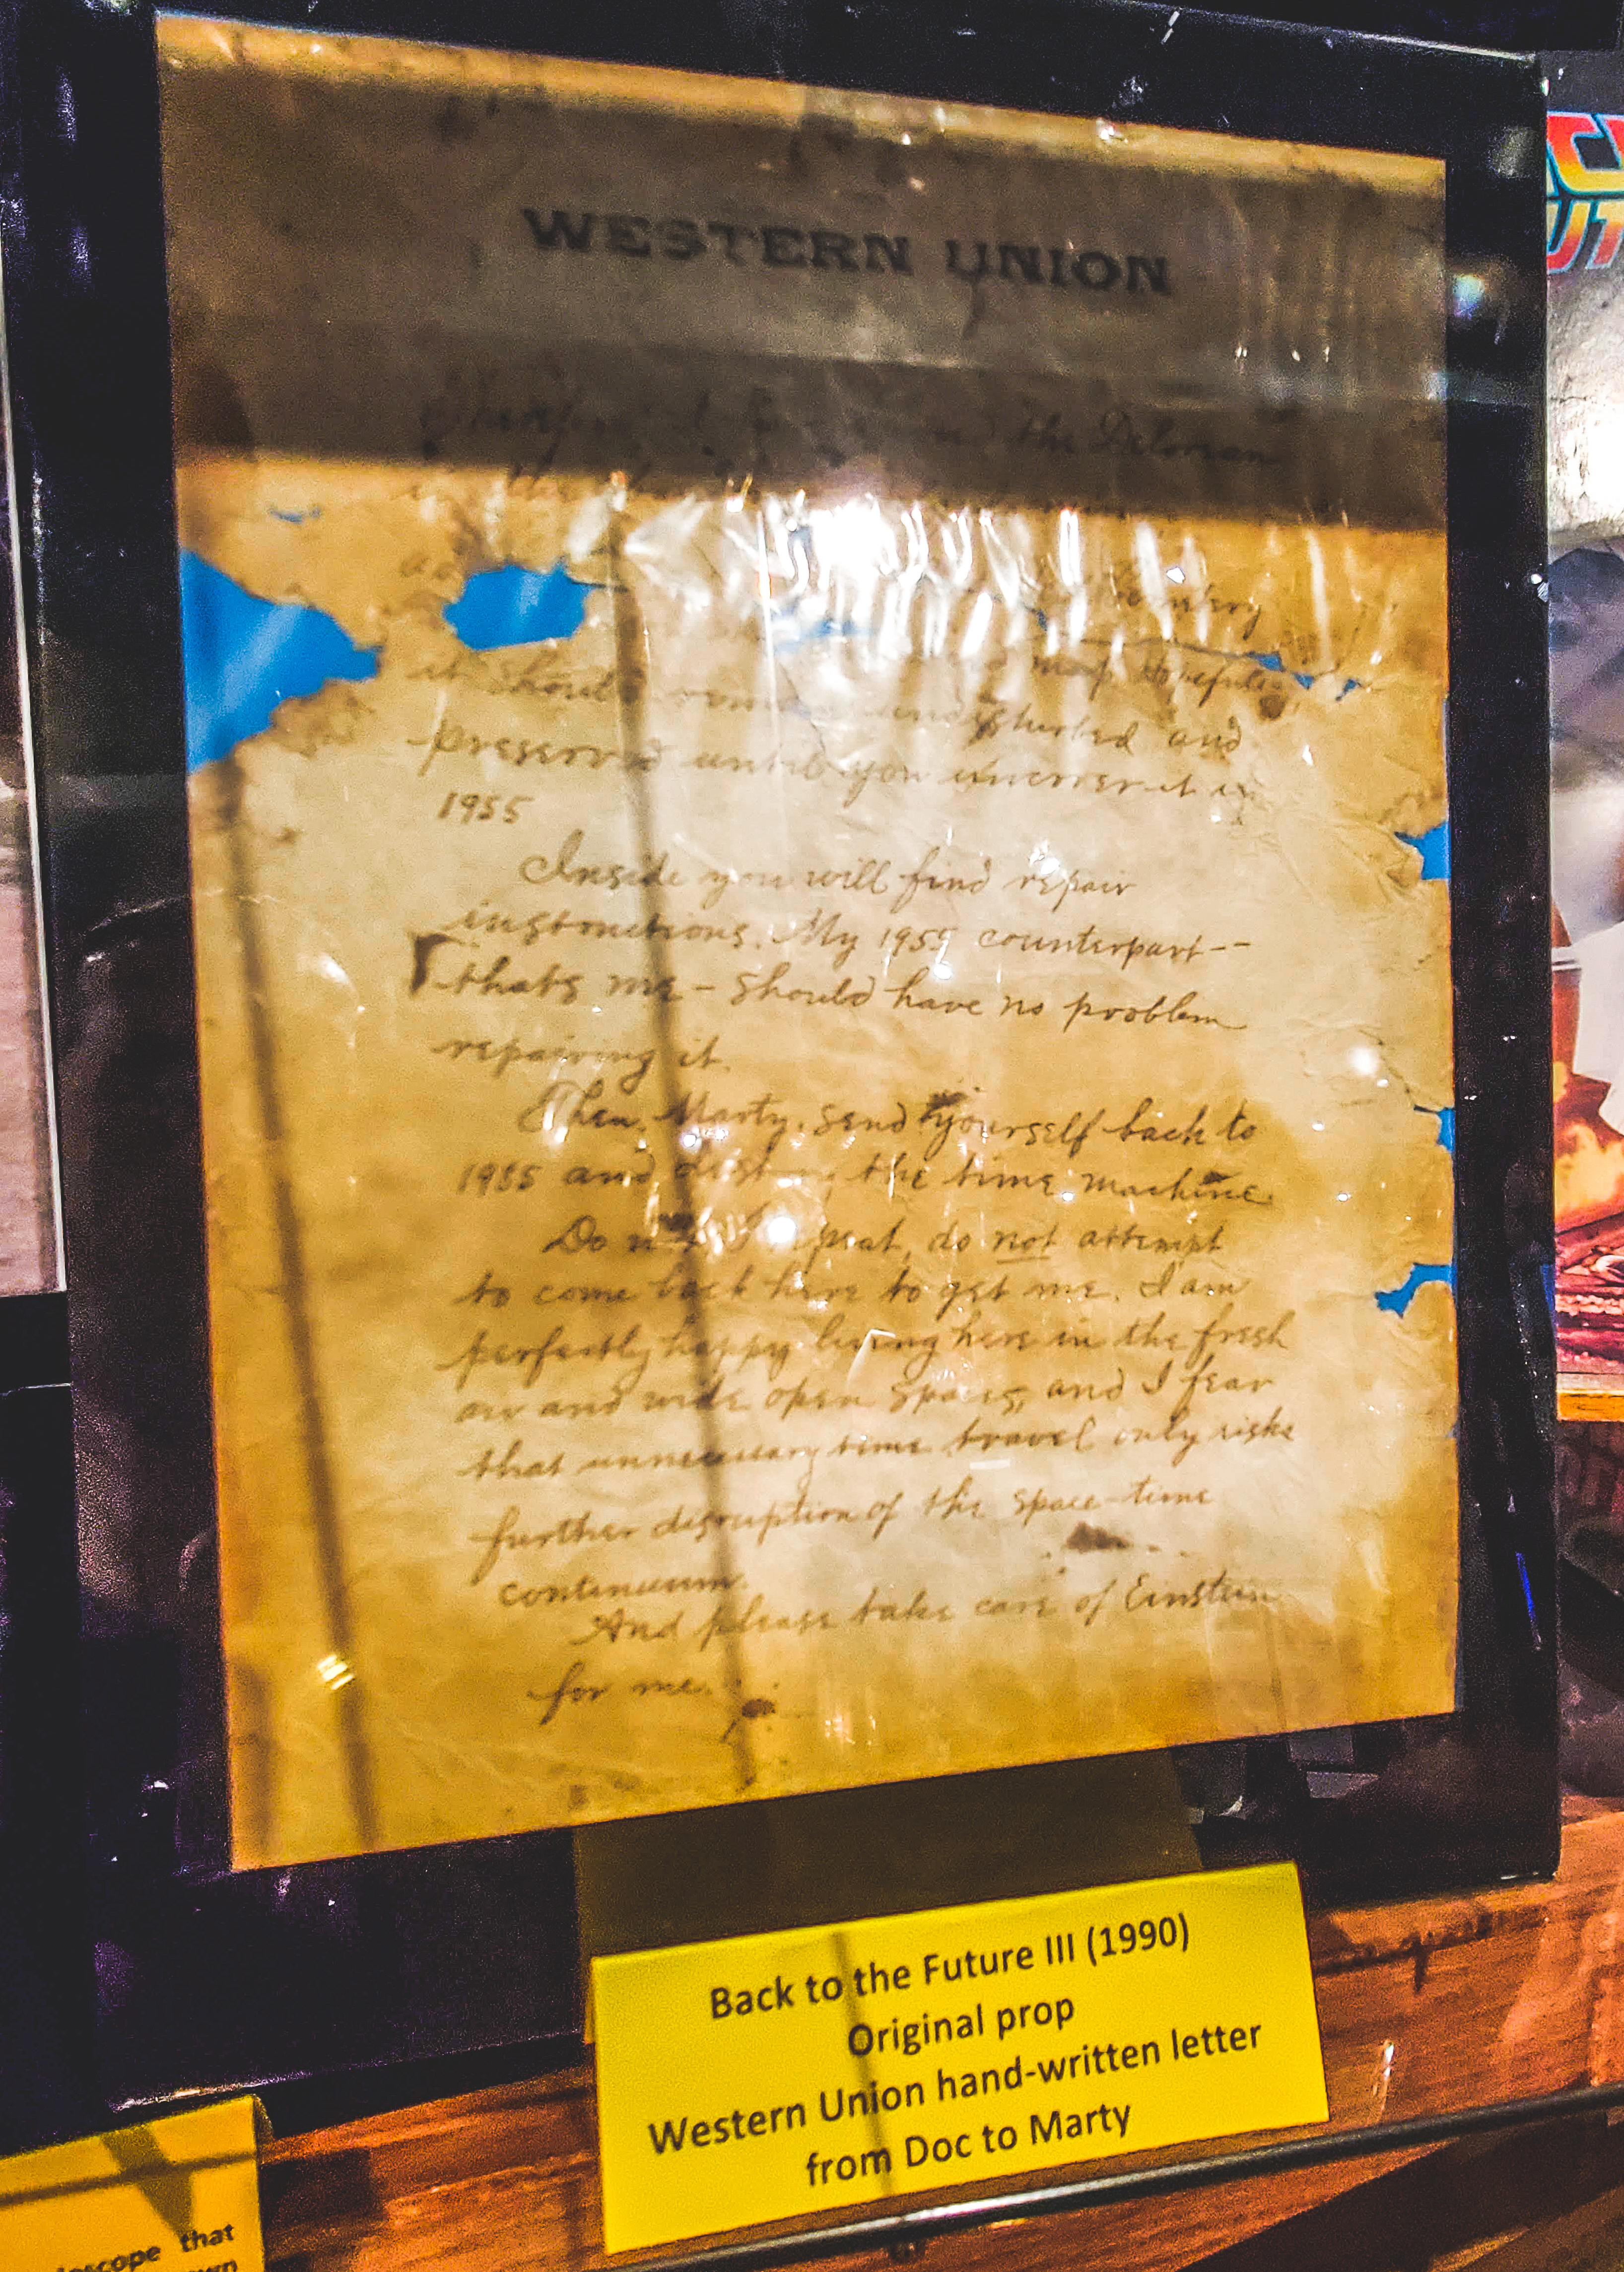 WESTERN UNION
the Delorean
map hopefully
it should undisturbed and
preserved until you uncover it in
1955
Inside you will find repair
instructions. My 1955 counterpart--
thats me - should have no problem
repairing it.
Then, Marty, send yourself back to
1985 and destroy the time machine.
Do not I repeat, do not attempt
to come back here to get me. I am
perfectly happy living here in the fresh
air and wide open spaces, and I fear
that unnecessary time travel only risks
further disruption of the space-time
continuum.
And please take care of Einstein
for me.
Back to the Future III (1990)
Original prop
Western Union hand-written letter
from Doc to Marty
that